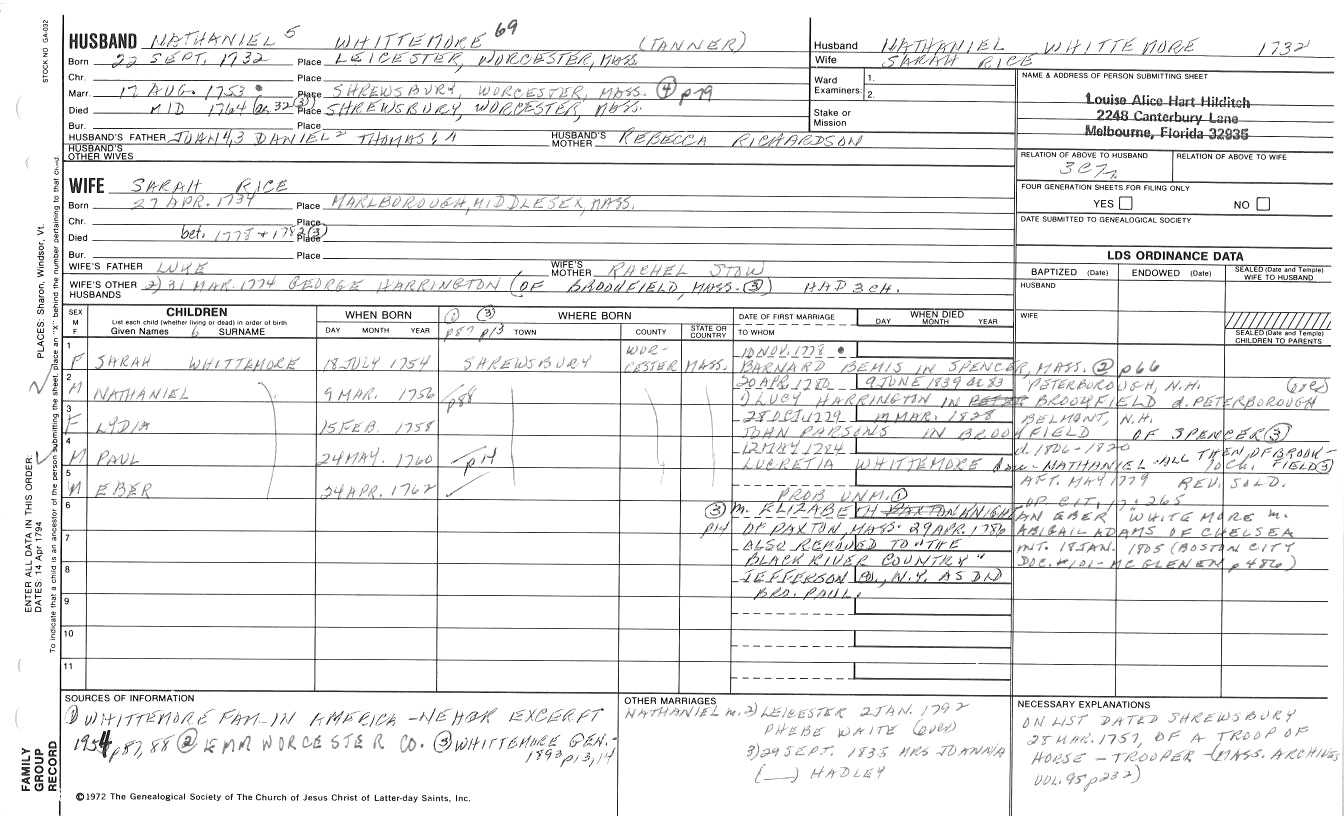 STOCK NO. GA-032
HUSBAND NATHANIEL 5 WHITTEMORE 69 (TANNER)
Born 22 SEPT. 1732 Place LEICESTER, WORCESTER, MASS
Chr. Place
Marr. 17 AUG. 1753 Place SHREWSBURY, WORCESTER, MASS. ④ p79
Died MID 1764 ae. 32 ③ Place SHREWSBURY, WORCESTER, MASS.
Bur. Place
HUSBAND'S FATHER JOHN 4,3 DANIEL 2 THOMAS 1, A HUSBAND'S MOTHER REBECCA RICHARDSON
HUSBAND'S OTHER WIVES
Husband NATHANIEL WHITTEMORE 1732
Wife SARAH RICE
Ward Examiners: 1.
2.
Stake or Mission
NAME & ADDRESS OF PERSON SUBMITTING SHEET
Louise Alice Hart Hilditch
2248 Canterbury Lane
Melbourne, Florida 32935
RELATION OF ABOVE TO HUSBAND RELATION OF ABOVE TO WIFE
3C7r
FOUR GENERATION SHEETS FOR FILING ONLY
YES NO
DATE SUBMITTED TO GENEALOGICAL SOCIETY
WIFE SARAH RICE
Born 27 APR. 1734 Place MARLBOROUGH, MIDDLESEX, MASS.
Chr. Place
Died bet. 1778 + 1782 ③ Place
Bur. Place
WIFE'S FATHER LUKE WIFE'S MOTHER RACHEL STOW
WIFE'S OTHER HUSBANDS 2) 31 MAR. 1774 GEORGE HARRINGTON (OF BROOKFIELD, MASS. ③) HAD 3 CH.
LDS ORDINANCE DATA
BAPTIZED (Date) ENDOWED (Date) SEALED (Date and Temple) WIFE TO HUSBAND
HUSBAND
WIFE
SEALED (Date and Temple) CHILDREN TO PARENTS
SEX M F CHILDREN List each child (whether living or dead) in order of birth Given Names 6 SURNAME
WHEN BORN DAY MONTH YEAR
① p87 ③ p13 WHERE BORN TOWN COUNTY STATE OR COUNTRY
DATE OF FIRST MARRIAGE TO WHOM
WHEN DIED DAY MONTH YEAR
1 F SARAH WHITTEMORE 18 JULY 1754 SHREWSBURY WORCESTER MASS. 10 NOV. 1778
BARNARD BEMIS IN SPENCER, MASS. ② p66
2 M NATHANIEL 9 MAR. 1756 p88 20 APR. 1780 9 JUNE 1839 ae 83 PETERBOROUGH, N.H. (over)
1) LUCY HARRINGTON IN PETER BROOKFIELD d. PETERBOROUGH
3 F LYDIA 15 FEB. 1758 28 OCT. 1779 17 MAR. 1828 BELMONT, N.H.
JOHN PARSONS IN BROOKFIELD OF SPENCER ③
4 M PAUL 24 MAY. 1760 p14 12 MAY 1784 d. 1806-1820
LUCRETIA WHITTEMORE dau-NATHANIEL-ALL THEN OF BROOKFIELD ③ 10 CH.
5 M EBER 24 APR. 1762 AFT. MAY 1779 REV. SOLD.
PROB UNM. ① OP. CIT. 17:265
6 ③ p14 m. ELIZABETH PAXTON KNIGHT
OF PAXTON, MASS. 29 APR. 1786
7 ALSO REMOVED TO "THE
BLACK RIVER COUNTRY"
8 JEFFERSON CO., N.Y. AS DID
BRO. PAUL.
AN EBER WHITEMORE m.
ABIGAIL ADAMS OF CHELSEA
INT. 18 JAN. 1805 (BOSTON CITY
DOC. #101-MCGLENEN p486)
9
10
11
SOURCES OF INFORMATION
① WHITTEMORE FAM-IN AMERICA-NEHGR EXCERPT
1954 p87,88 ② EMR WORCESTER CO. ③ WHITTEMORE GEN.-
1893 p13,14
OTHER MARRIAGES
NATHANIEL m. 2) LEICESTER 2 JAN. 1792
PHEBE WAITE (over)
3) 29 SEPT. 1835 MRS JOANNA
(__) HADLEY
NECESSARY EXPLANATIONS
ON LIST DATED SHREWSBURY
28 MAR. 1757, OF A TROOP OF
HORSE - TROOPER - (MASS. ARCHIVES
VOL. 95 p232)
©1972 The Genealogical Society of The Church of Jesus Christ of Latter-day Saints, Inc.
FAMILY GROUP RECORD
ENTER ALL DATA IN THIS ORDER:
DATES: 14 Apr 1794
PLACES: Sharon, Windsor, Vt.
To indicate that a child is an ancestor of the person submitting the sheet, place an "X" behind the number pertaining to that child.